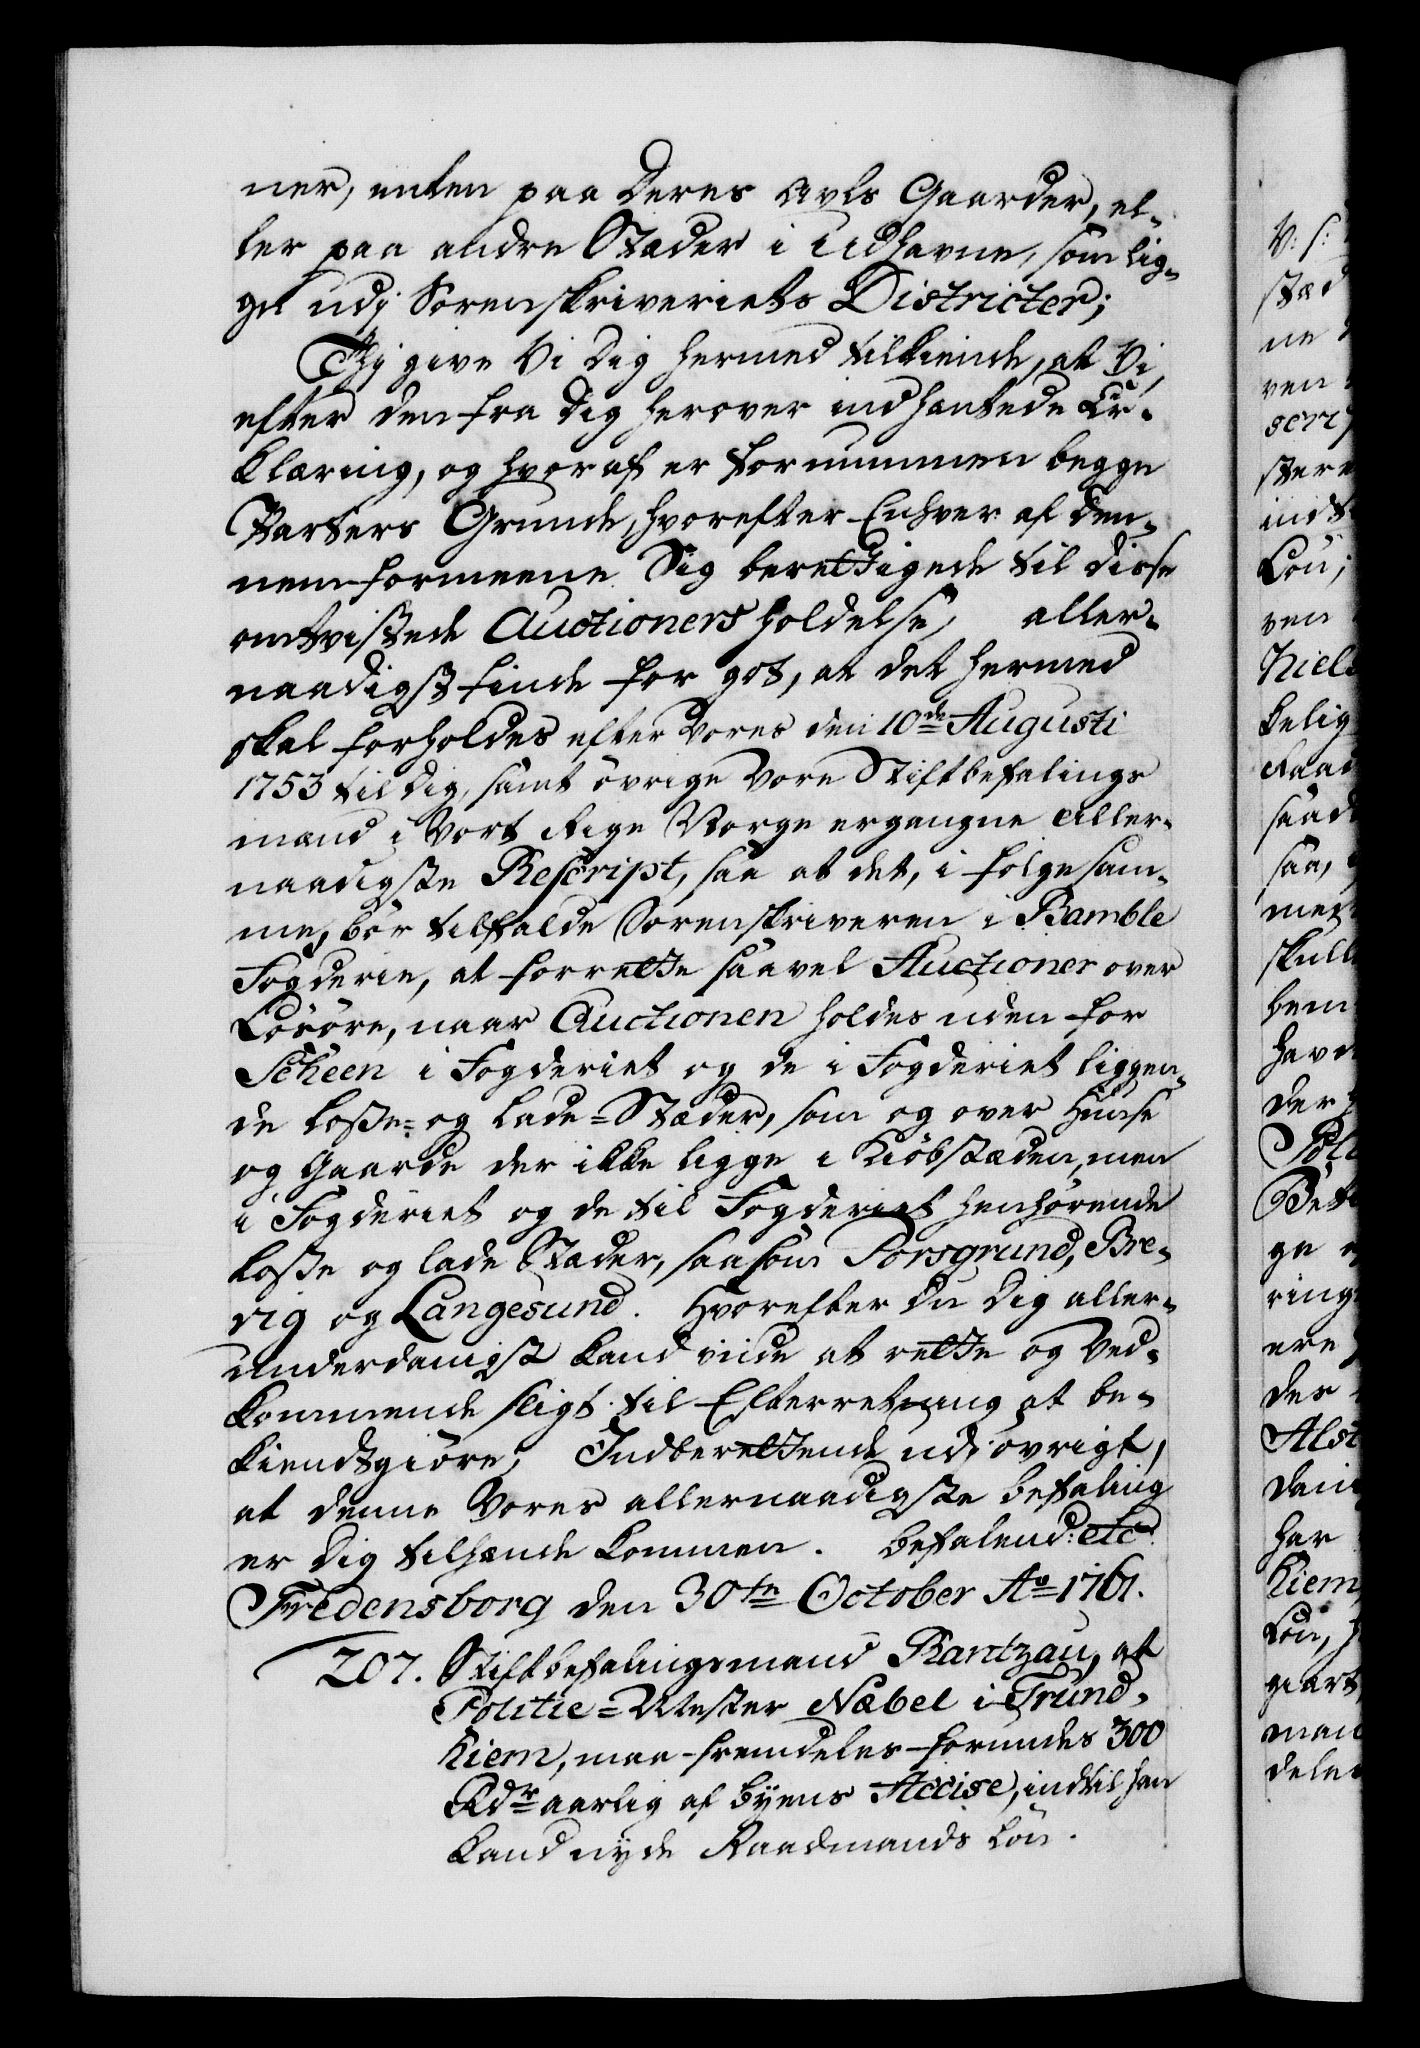 ner, enten paa Deres Avls Gaarder, el-
ler paa andre Stæder i Udhavne, som lig-
ge udj Sorenskriveriets Districter;
Thj give Vi Dig hermed tilkiende, at Vi,
efter den fra Dig herover indhentede Er-
klæring, og hvoraf er fornummen begge
Parters Grunde, hvorefter Enhver af den-
nem formeene Sig berettigede til disse
omtvistede Auctioners Holdelse, aller-
naadigst finde for got, at det hermed
skal forholdes efter Vores den 10de Augusti
1753 til Dig, samt övrige Vore Stiftbefalings
mænd i Vort Rige Norge ergangne Aller-
naadigste Rescript, saa at det, i fölge sam-
me, bör tilfalde Sorenskriveren i Bamble
Fogderie, at forrette saavel Auctioner over
Lösöre, naar Auctionen holdes uden for
Scheen i Fogderiet og de i Fogderiet liggen-
de Losse- og Lade-Stæder, som og over Huuse
og Gaarde der ikke ligge i Kiöbstæden, men
i Fogderiet og de til Fogderiet henhörende
Losse og lade Stæder, saasom Porsgrund, Bre-
vig og Langesund. Hvorefter Du Dig aller-
underdanigst kand viide at rette og Ved-
kommende sligt til Efterretning at be-
kiendtgiöre, Indberettende udi övrigt,
at denne Vores allernaadigste befaling
er Dig tilhænde kommen. befalend: etc.
Fredensborg den 30te October Ao 1761.
207. Stiftbefalingsmand Rantzau, at
Politie-Mester Næbel i Trund-
hiem, maa fremdeles forundes 300
Rdr aarlig af Byens Accise, indtil han
kand nyde Raadmands Lön.
V: S:
stæd
ne
ven
scri
stere
indt
Lön;
ven
Niels
kelig
Raad
saad
saa,
med
skull
bem
havd
der
Poli
Bet
ge
ring
ere
der
Als
dani
har
hiem
Lön,
giort
man
dele